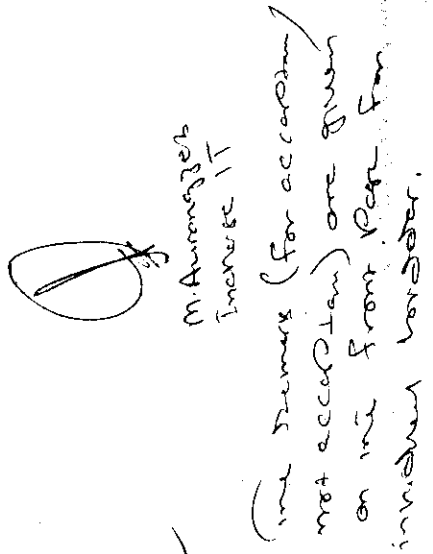 M. Aurangzeb
Incharge IT
(The remarks (for acceptance/
not acceptance) are given
on the front Page for
individual bidder.